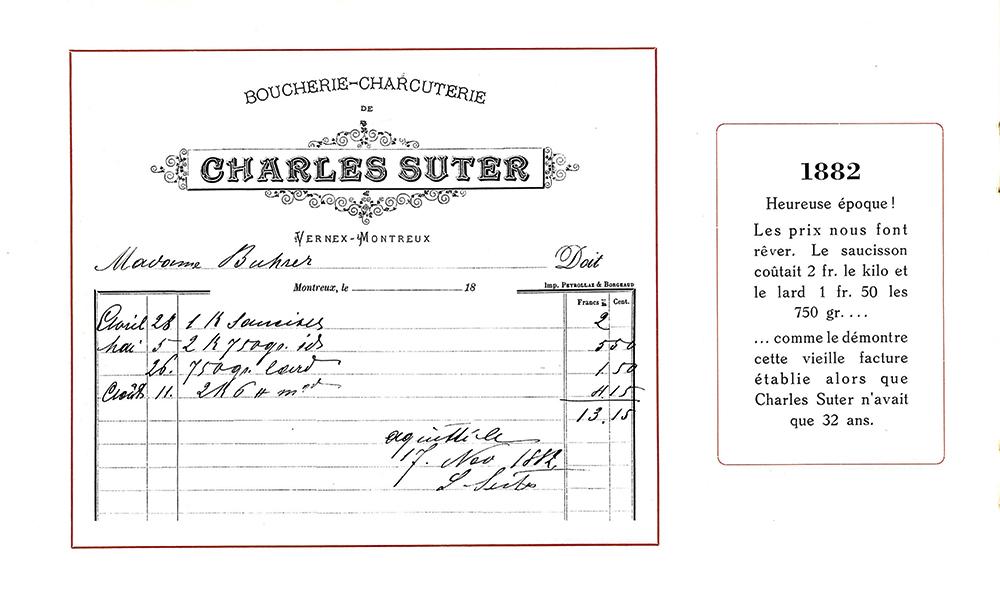 BOUCHERIE-CHARCUTERIE
DE
CHARLES SUTER
VERNEX-MONTREUX
Madame Buhrer Doit
Montreux, le 18
Imp. PEYROLLAZ & BORGEAUD
Francs Cent.
Avril 28 1 K Saucisses 2
Mai 5 2 K 750 gr. id 5 50
26. 750 gr. lard 1.50
Août 11. 4.15
13.15
aquitté le
17. Nov 1882
Suter
1882
Heureuse époque !
Les prix nous font
rêver. Le saucisson
coûtait 2 fr. le kilo et
le lard 1 fr. 50 les
750 gr. ...
... comme le démontre
cette vieille facture
établie alors que
Charles Suter n'avait
que 32 ans.